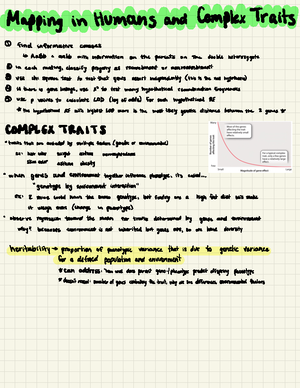 Mapping in Humans and Complex Traits
① find informative crosses
↳ AaBb × aabb with information on the parents on the double heterozygote
② in each mating, classify progeny as recombinant or nonrecombinant
③ use chi square test to test that genes assort independently (this is the null hypothesis)
④ if there is gene linkage, use X² to test many hypothetical recombination frequencies
⑤ use p scores to calculate LOD (log of odds) for each hypothetical RF
↳ the hypothetical RF with highest LOD score is the most likely genetic distance between the 2 genes
COMPLEX TRAITS
• traits that are controlled by multiple factors (genetic or environmental)
ex: hair color height autism
skin color asthma obesity
• when genes and environment together influence phenotype, its called...
"genotype by environment interaction"
ex: 2 mice could have the same genotype, but feeding one a high fat diet will make
it weigh more (change in phenotype)
• observe regression toward the mean for traits determined by genes and environment
why? because environment is not inherited but genes are, so we blend diversity
heritability → proportion of phenotypic variance that is due to genetic variance
for a defined population and environment
* can address: how well does parent geno/phenotype predict offspring phenotype
* doesn't reveal: number of genes controlling the trait, why all the differences, environmental factors
Most of the genes affecting the trait have relatively small effects.
For a typical complex trait, only a few genes have a relatively large effect.
Many
Few
Small
Large
Magnitude of gene effect